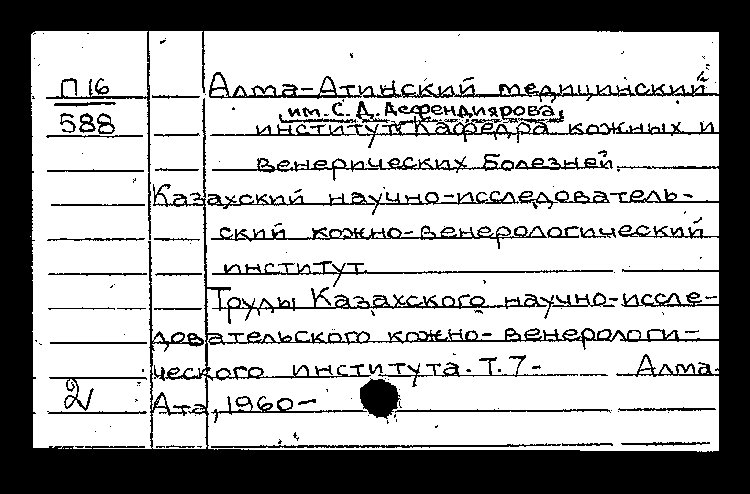 П 16
588
Алма-Атинский медицинский
им. С. Д. Асфендиярова,
институт Кафедра кожных и
венерических болезней.
Казахский научно-исследователь-
ский кожно-венерологический
институт.
Труды Казахского научно-иссле-
довательского кожно-венерологи-
ческого института. Т. 7- Алма-
Ата, 1960-
2